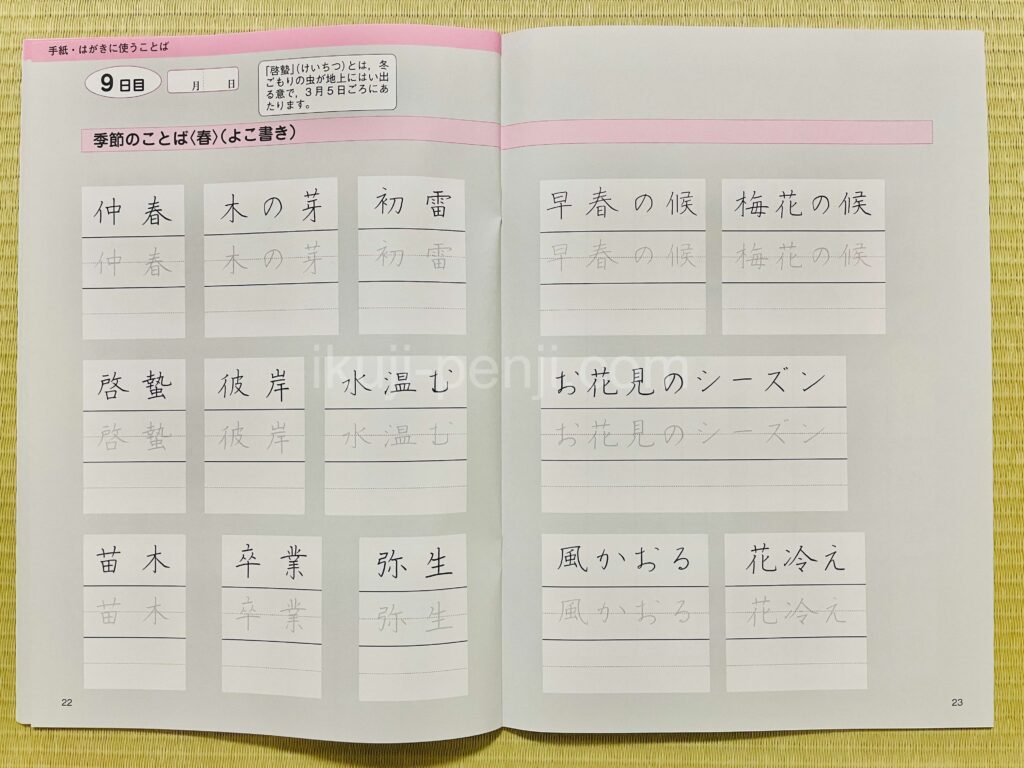 手紙・はがきに使うことば
9日目
月 日
「啓蟄」(けいちつ)とは，冬
ごもりの虫が地上にはい出
る意で，3月5日ごろにあ
たります。
季節のことば〈春〉(よこ書き)
仲春 木の芽 初雷
仲春 木の芽 初雷
啓蟄 彼岸 水温む
啓蟄 彼岸 水温む
苗木 卒業 弥生
苗木 卒業 弥生
22
早春の候 梅花の候
早春の候 梅花の候
お花見のシーズン
お花見のシーズン
風かおる 花冷え
風かおる 花冷え
23
ikuji-penji.com